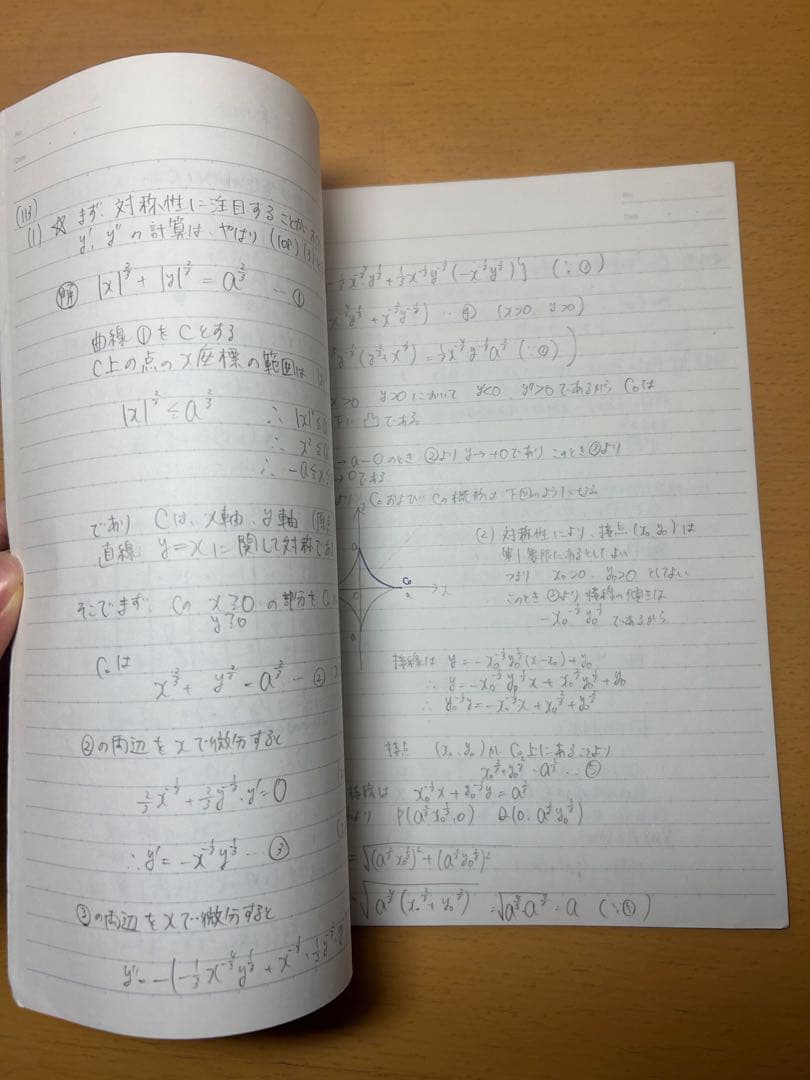 No.
Date
(113)
(1) ☆ まず、対称性に注目することが
y', y''の計算は、やはり (108) (3)
|x|^{2/3} + |y|^{2/3} = a^{2/3} … ①
曲線①をCとする
C上の点のx座標の範囲は
|x|^{2/3} ≦ a^{2/3} ∴ |x|
∴ x² ≦
∴ -a≦x≦
であり Cは、x軸、y軸
直線: y=xに関して対称であ
そこでまず Cの x≧0 の部分を C
y≧0
C₀は
x^{2/3} + y^{2/3} = a^{2/3} … ②
②の両辺をxで微分すると
2/3 x^{-1/3} + 2/3 y^{-1/3}・y' = 0
∴ y' = -x^{-1/3} y^{1/3} … ③
③の両辺をxで微分すると
y'' = -(-1/3 x^{-4/3} y^{1/3} + x^{-1/3}・1/3 y^{-2/3}・y'
No.
Date
-1/3 x^{-4/3} y^{1/3} + 1/3 x^{-1/3} y^{-2/3} (-x^{-1/3} y^{1/3})} (∵③)
x^{-4/3} y^{1/3} + x^{-2/3} y^{-1/3}) … ④ (x>0, y>0)
y^{-1/3} (y^{2/3} + x^{2/3}) = 1/3 x^{-4/3} y^{-1/3} a^{2/3} (∵②))
x>0 y>0において y'<0, y''>0であるから C₀は
下に凸である。
→a-0のとき ②より y→+0であり このとき③より
→0である
より C₀およびCの概形は下図のようになる
y
a
C₀
O
a
x
-a
(2) 対称性により、接点(x₀, y₀)は
第1象限にあるとしてよい
つまり x₀>0, y₀>0としてよい
このとき③より接線の傾きは
-x₀^{-1/3} y₀^{1/3} であるから
接線は y = -x₀^{-1/3} y₀^{1/3} (x-x₀) + y₀
∴ y = -x₀^{-1/3} y₀^{1/3} x + x₀^{2/3} y₀^{1/3} + y₀
∴ y₀^{-1/3} y = -x₀^{-1/3} x + x₀^{2/3} + y₀^{2/3}
接点 (x₀, y₀)がC₀上にあることより
x₀^{2/3} + y₀^{2/3} = a^{2/3} … ⑤
接線は x₀^{-1/3} x + y₀^{-1/3} y = a^{2/3}
より P(a^{2/3} x₀^{1/3}, 0) Q(0, a^{2/3} y₀^{1/3})
= √((a^{2/3} x₀^{1/3})² + (a^{2/3} y₀^{1/3})²)
= √(a^{4/3} (x₀^{2/3} + y₀^{2/3})) = √(a^{4/3}・a^{2/3}) = a (∵⑤)